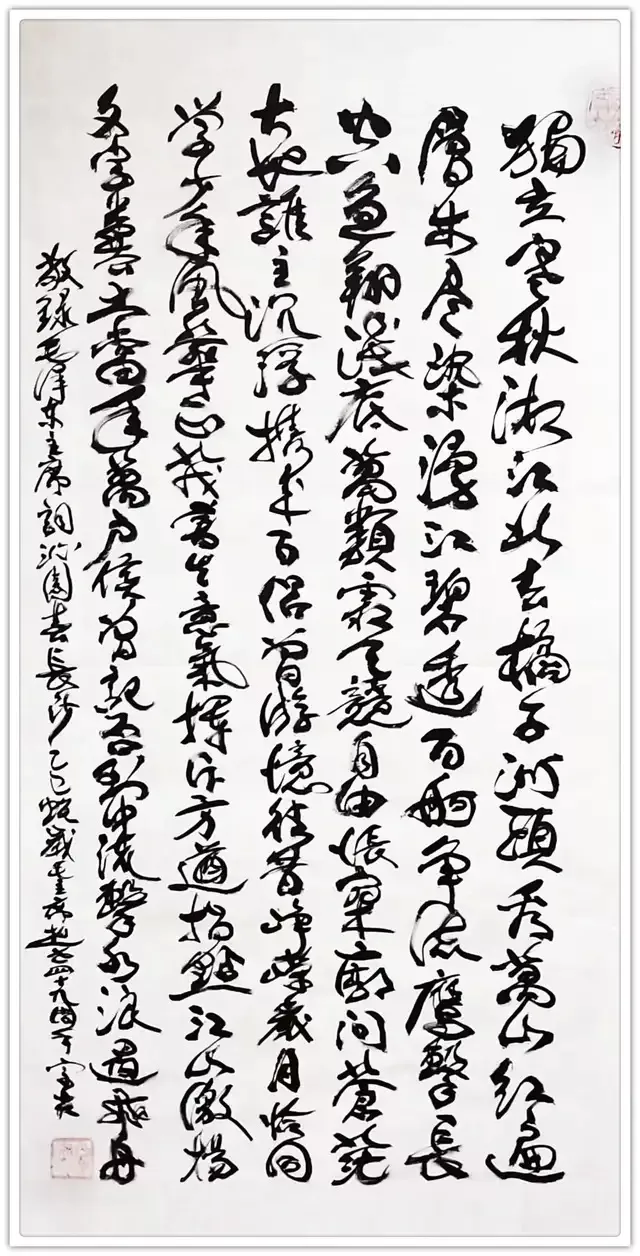 獨立寒秋湘江北去橘子洲頭看萬山红遍
層林尽染漫江碧透百舸争流鷹擊長
空魚翔淺底萬類霜天競自由悵寥廓问蒼茫
大地誰主沉浮攜来百侣曾游憶往昔崢嶸歲月恰同
学少年風華正茂書生意氣揮斥方遒指點江山激揚
文字糞土當年萬户侯曾記否到中流擊水浪遏飛舟
敬録毛泽東主席詞沁園春長沙乙巳歲毛主席逝世四十九周年